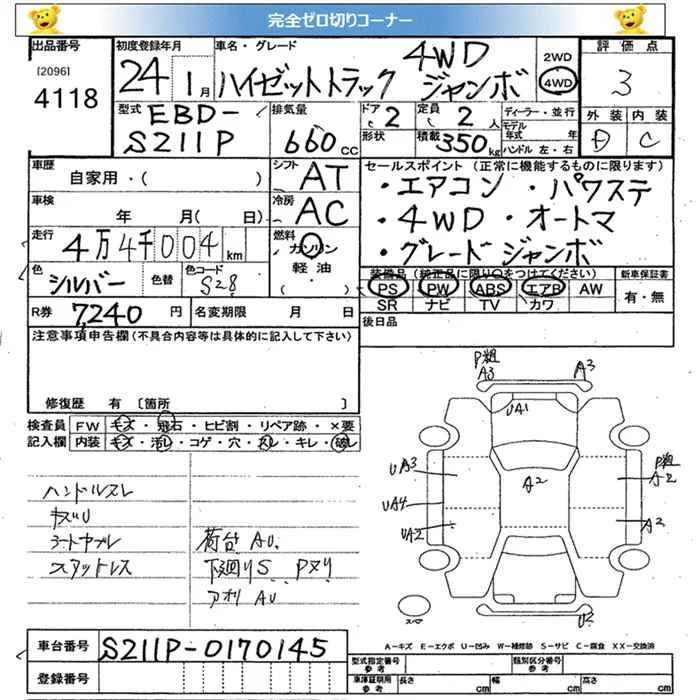 完全ゼロ切りコーナー
出品番号
[2096]
4118
初度登録年月
24 年 1月
車名・グレード
ハイゼットトラック 4WD ジャンボ
2WD
4WD
評価点
3
外装 内装
D C
型式 EBD-S211P
排気量
660 cc
ドア 2
形状
定員 2 人
積載 350 kg
ディーラー・並行
モデル年式 年
ハンドル 左・右
車歴
自家用・( )
シフト AT
車検
年 月( 日)
冷房 AC
走行
4万4千004 km
燃料
ガソリン
軽油
色
シルバー
色替
色コード
S28
セールスポイント(正常に機能するものに限ります)
・エアコン ・パワステ
・4WD ・オートマ
・グレードジャンボ
装備品(純正品に限り○をつけてください)
PS PW ABS エアB AW
SR ナビ TV カワ
新車保証書
有・無
R券 7,240 円
名変期限 月 日
後日品
注意事項申告欄(不具合内容等は具体的に記入して下さい)
修復歴 有 [箇所 ]
検査員記入欄
FW キズ・飛石・ヒビ割・リペア跡・×要
内装 キズ・汚レ・コゲ・穴・スレ・キレ・破レ
ハンドルスレ
キズU
荷台 AU.
下廻りS Pヌリ
アオリ AU
P粗
A3
A3
UA1
UA3
P粗
A2
A2
UA4
UA2
A2
U2
スペア
A-キズ E-エクボ U-凹み W-補修跡 S-サビ C-腐食 XX-交換済
車台番号 S211P-0170145
登録番号
型式指定番号 参考
類別区分番号 参考
車庫証明用 参考
長さ cm
幅 cm
高さ cm